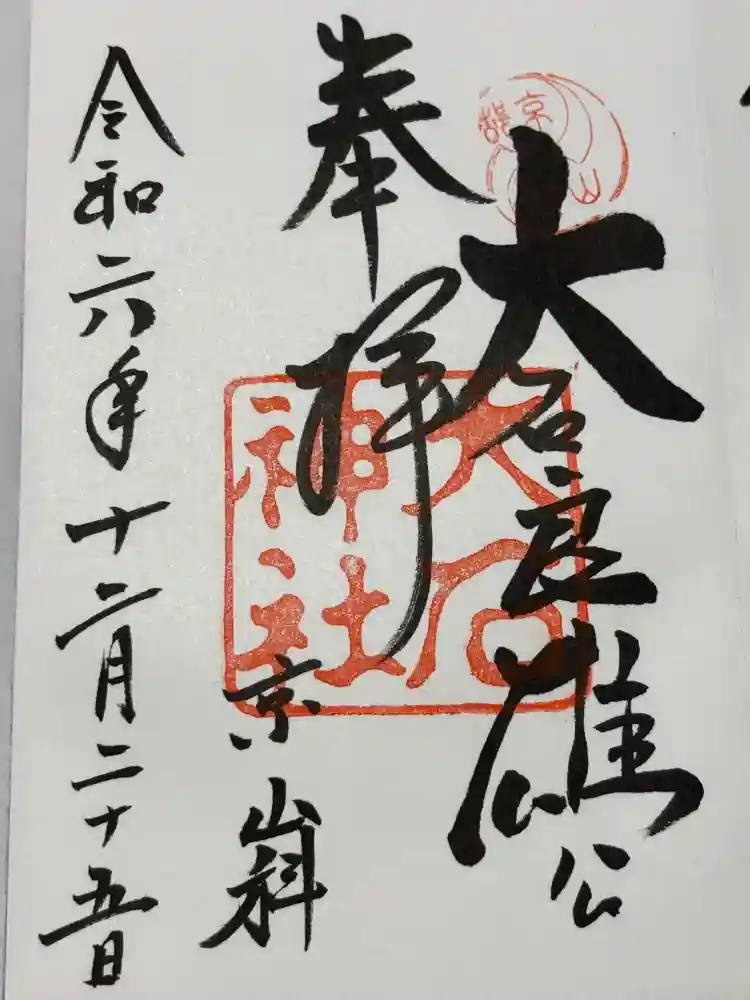 大石良雄公
奉拝
京山科
令和六年十二月二十五日
大石
神社